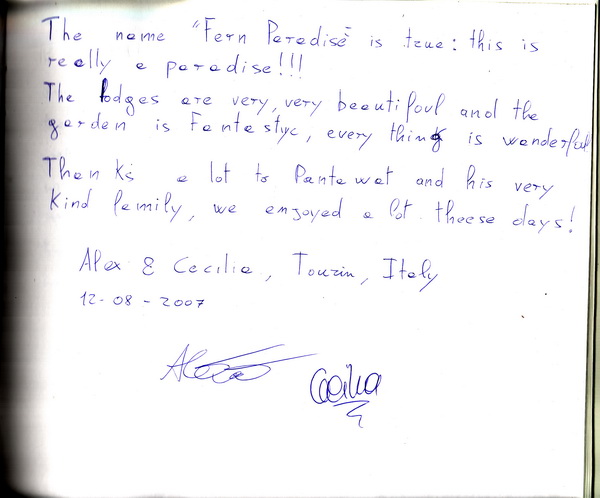 The name "Fern Paradise" is true: this is
really a paradise!!!
The lodges are very, very beautifoul and the
garden is Fantastyc, every thing is wonderfoul
Thanks a lot to Pantawat and his very
kind family, we enjoyed a lot theese days!
Alex & Cecilia, Tourin, Italy
12-08-2007
Cecilia